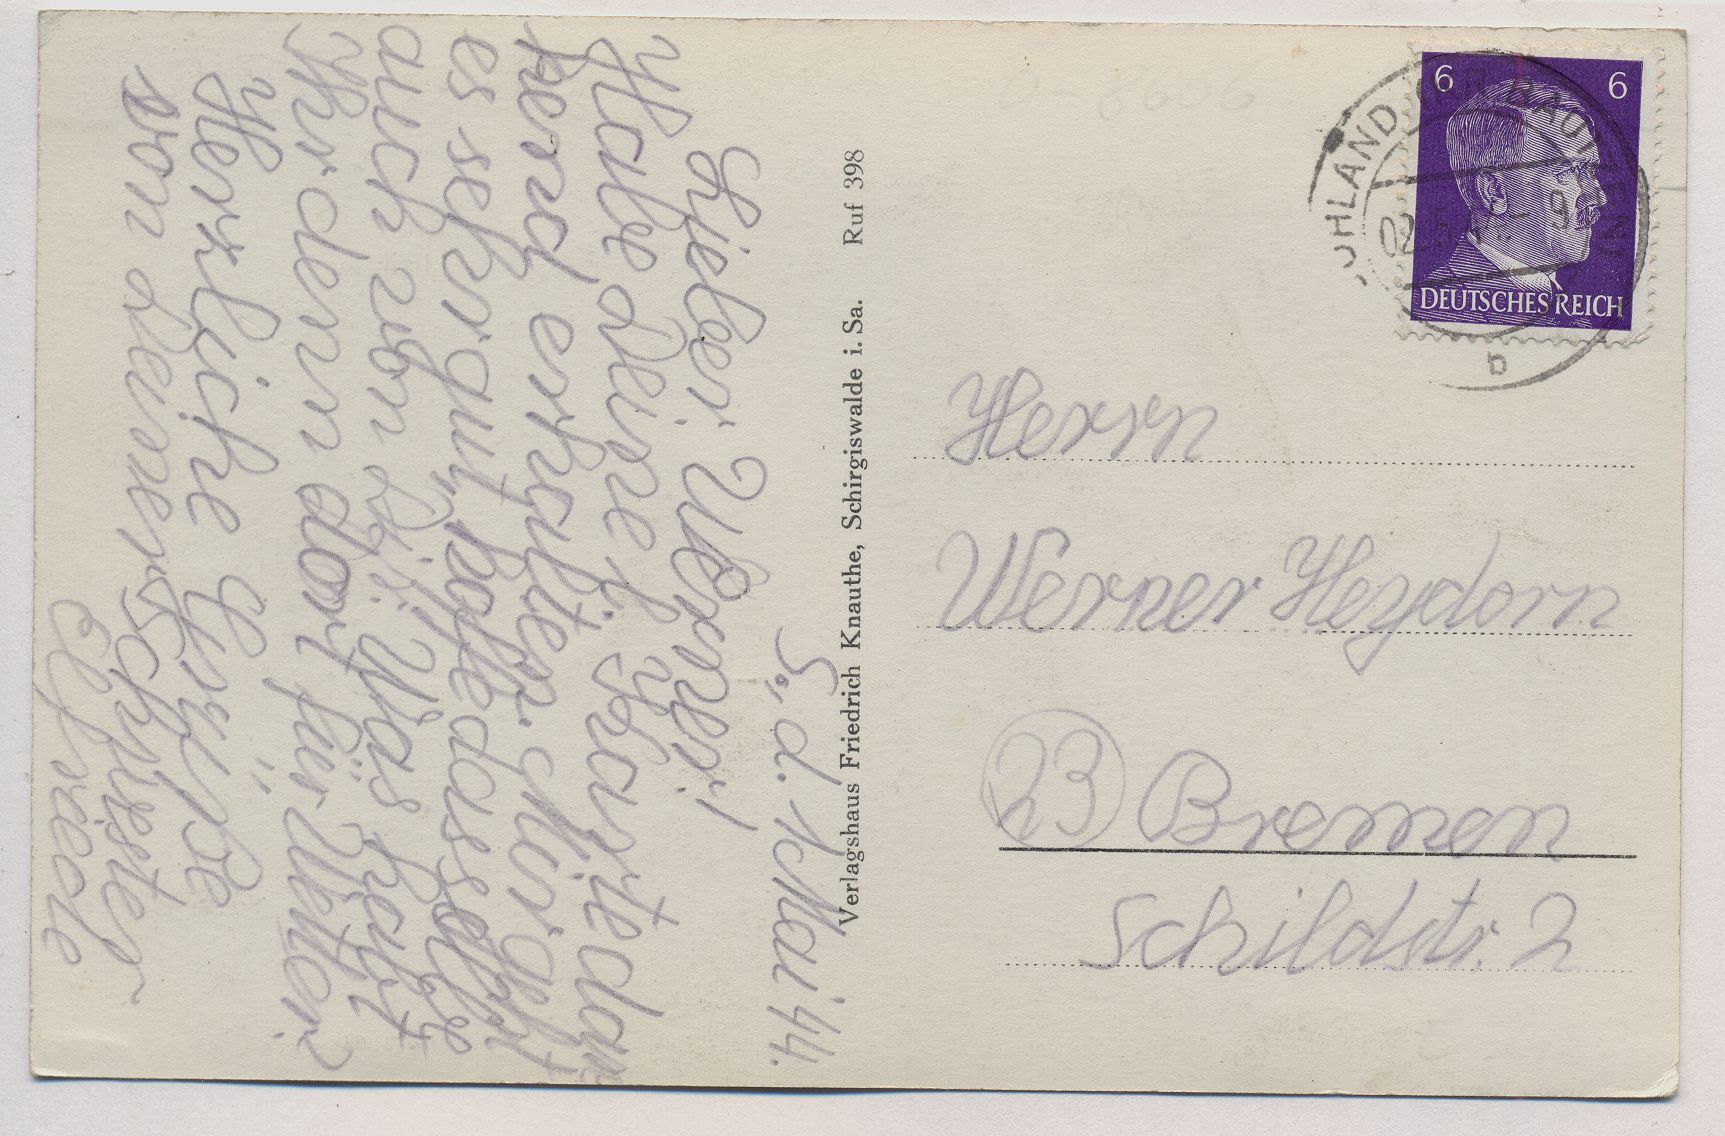 S., d. 1. Mai 44.
Lieber Werner!
Habe Deine l. Karte dan
kend erhalten. Mir geht
es sehr gut, hoffe dasselbe
auch von Dir. Was habt
Ihr denn dort für Wetter?
Herzliche Grüße
von Deiner Schwester
Elfriede
Verlagshaus Friedrich Knauthe, Schirgiswalde i. Sa. Ruf 398
6 6
DEUTSCHES REICH
OHLAND BAUTZEN
02.5. 9
b
Herrn
Werner Heydorn
23 Bremen
Schildstr. 2